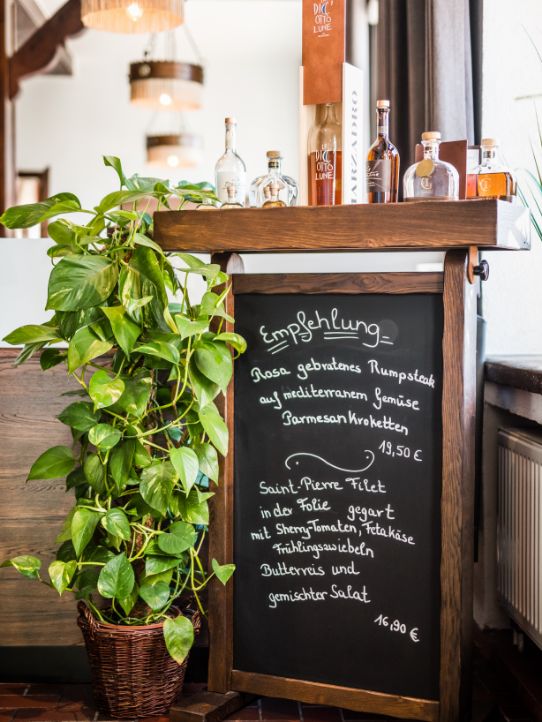 DICI
OTTO
LUNE
MARZADRO
DICI
OTTO
LUNE
Empfehlung
Rosa gebratenes Rumpsteak
auf mediterranem Gemüse
Parmesan Kroketten
19,50 €
Saint-Pierre Filet
in der Folie gegart
mit Sherry-Tomaten, Fetakäse
Frühlingszwiebeln
Butterreis und
gemischter Salat
16,90 €